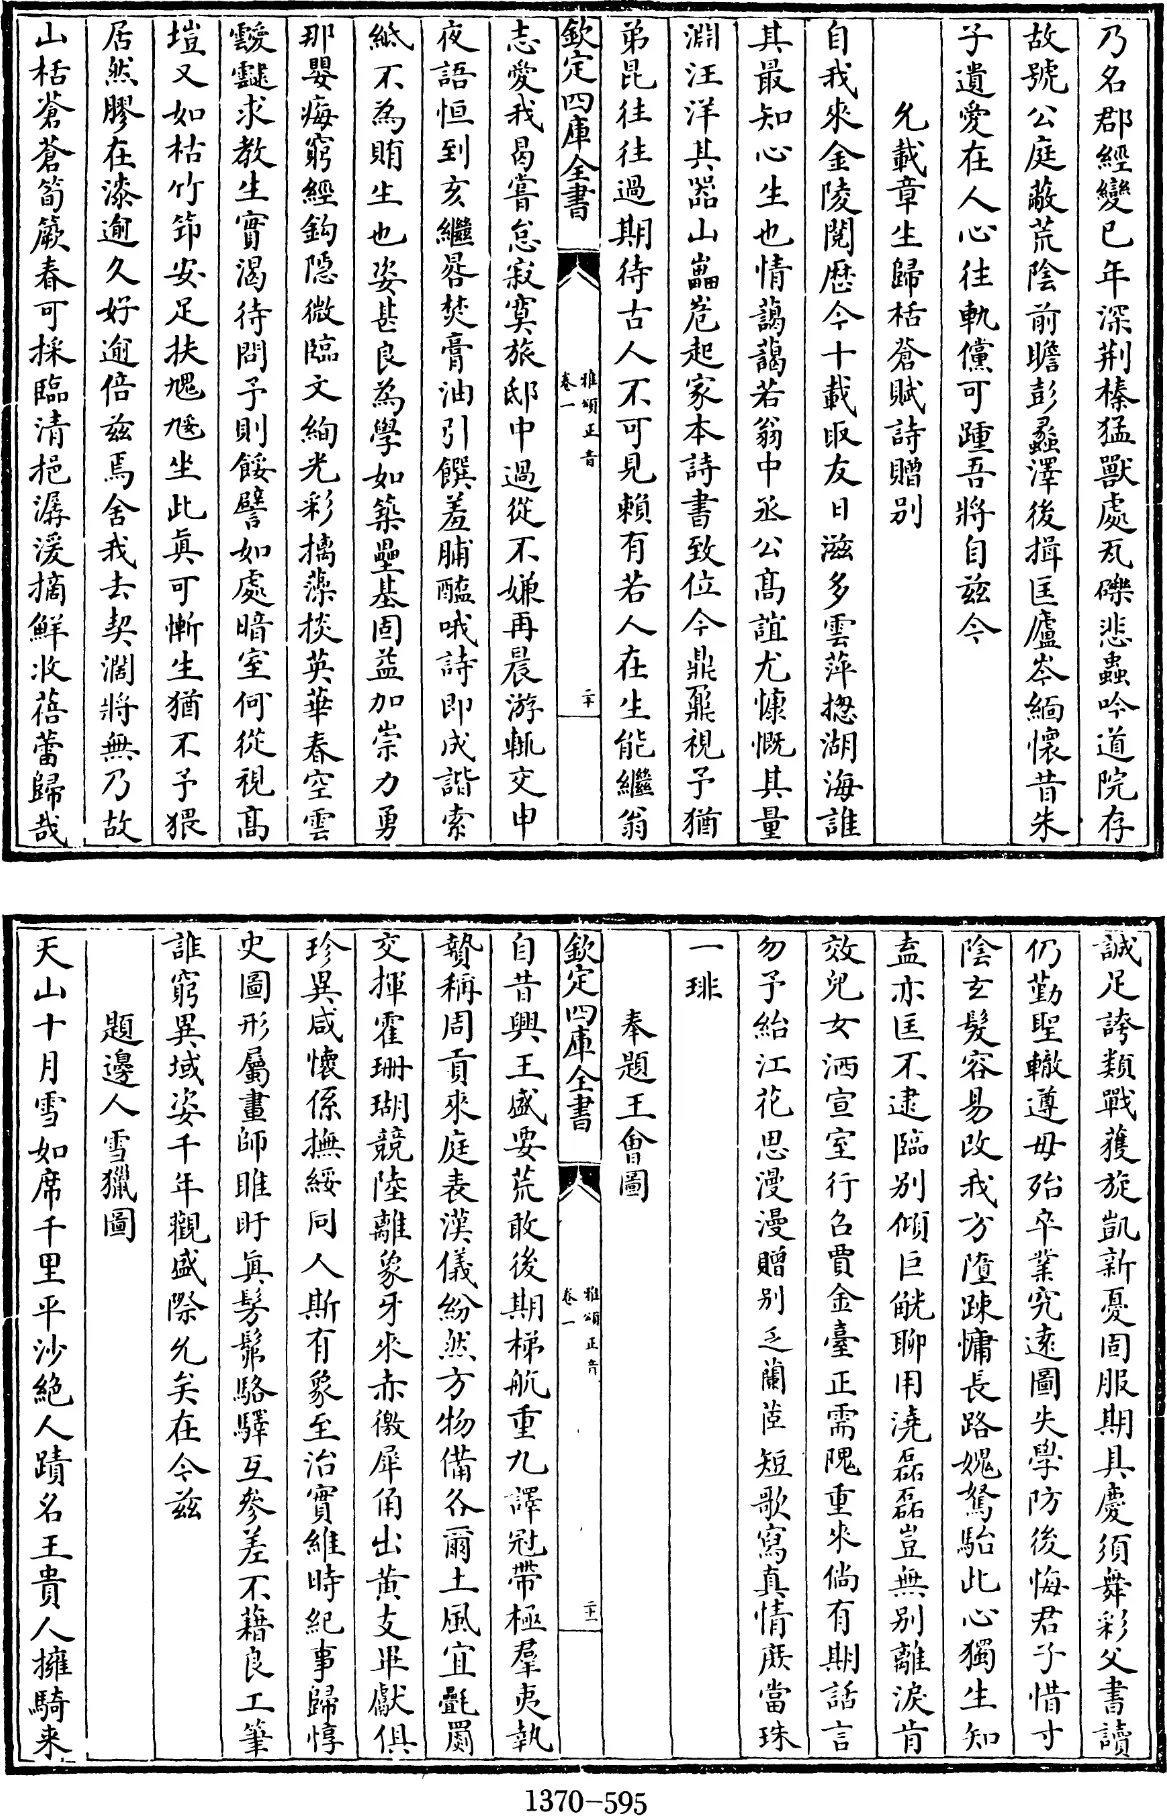 乃名郡經變已年深荆榛猛獸處瓦礫悲蟲吟道院存
故號公庭蔽荒陰前瞻彭蠡澤後揖匡廬岑緬懷昔朱
子遺愛在人心往軌儻可踵吾將自兹今
允載章生歸栝蒼賦詩贈别
自我來金陵閲歴今十載取友日滋多雲萍揔湖海誰
其最知心生也情藹藹若翁中丞公髙誼尤慷慨其量
淵汪洋其器山巋嵬起家本詩書致位今鼎鼐視予猶
弟昆往往過期待古人不可見賴有若人在生能繼翁
欽定四庫全書
雅頌正音
卷一
二十
志愛我曷嘗怠寂寞旅邸中過從不嫌再晨游軏交申
夜語恒到亥繼晷焚膏油引饌羞脯醢哦詩即成諧索
紙不為賄生也姿甚良為學如築壘基固益加崇力勇
那嬰痗窮經鈎隠微臨文絢光彩摛藻掞英華春空雲
靉靆求教生實渇待問予則餒譬如處暗室何從視髙
塏又如枯竹笻安足扶𡯁𡯓坐此真可慚生猶不予猥
居然膠在漆逾久好逾倍兹焉舍我去契濶將無乃故
山栝蒼蒼筍簌春可採臨清挹潺湲摘鮮收蓓蕾歸哉
誠足誇類戰獲旋凱新憂固服期具慶須舞彩父書讀
仍勤聖轍遵毋殆卒業究遠圖失學防後悔君子惜寸
陰玄髮容易改我方墮踈慵長路媿駑駘此心獨生知
盍亦匡不逮臨别傾巨觥聊用澆磊磊豈無别離淚肯
效兒女洒宣室行召賈金臺正需隗重來倘有期話言
勿予紿江花思漫漫贈别乏蘭茝短歌寫真情庶當珠
一琲
奉題王會圖
欽定四庫全書
雅頌正音
卷一
二十一
自昔興王盛要荒敢後期梯航重九譯冠帶極羣夷執
贄稱周貢來庭表漢儀紛然方物備各爾土風宜氍罽
交揮霍珊瑚競陸離象牙來赤徼犀角出黄支畢獻俱
珍異咸懷係撫綏同人斯有象至治實維時紀事歸惇
史圖形屬畫師睢盱真髣髴駱驛互參差不藉良工筆
誰窮異域姿千年觀盛際允矣在今兹
題邊人雪獵圖
天山十月雪如席千里平沙絶人蹟名王貴人擁騎来
1370-595